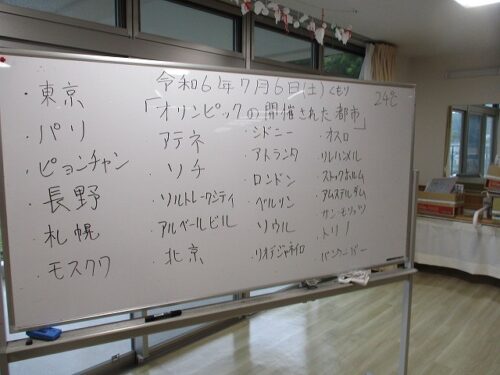 令和6年7月6日(土)くもり 24℃
「オリンピックの開催された都市」
・東京
・パリ
・ピョンチャン
・長野
・札幌
・モスクワ
・アテネ
・ソチ
・ソルトレークシティ
・アルベールビル
・北京
・シドニー
・アトランタ
・ロンドン
・ベルリン
・ソウル
・リオデジャネイロ
・オスロ
・リレハンメル
・ストックホルム
・アムステルダム
・サン・モリッツ
・トリノ
・バンクーバー